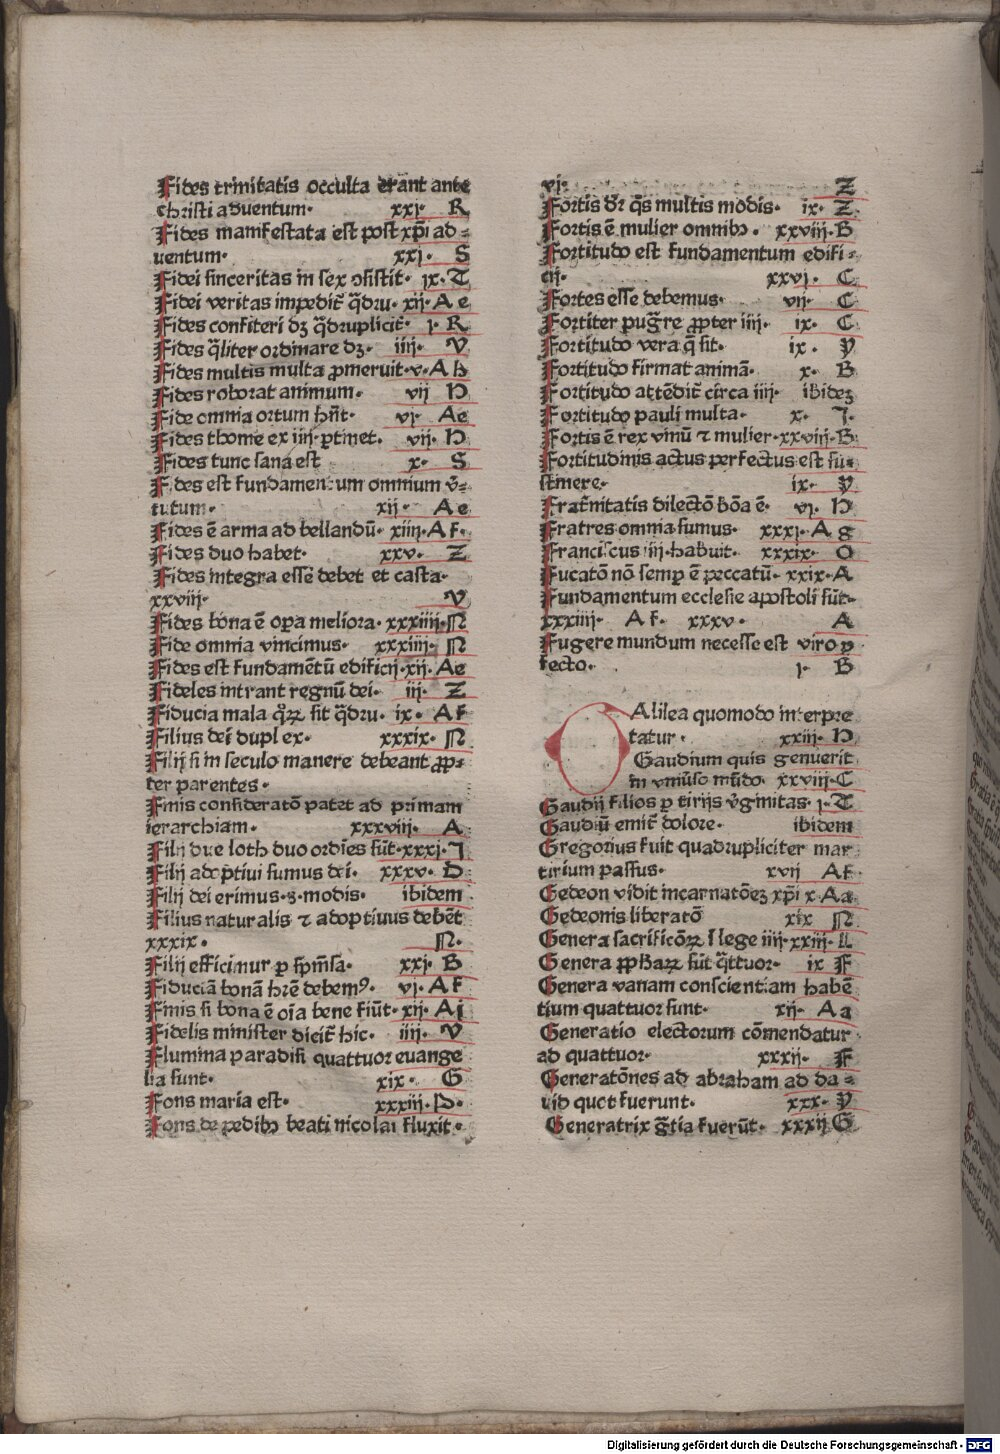 Fides trinitatis occulta erant ante
christi aduentum· xxj· R
Fides manifestata est post xp̄i ad⸗
uentum· xxj· S
Fidei sinceritas in sex ↄsistit· ix· T
Fidei veritas impedit̄ q̄dru· xij· A e
Fides confiteri dꝫ q̄druplicit̄· j· R
Fides q̄liter ordinare dꝫ· iiij· V
Fides multis multa ꝓmeruit·v·A h
Fides roborat animum· vij H
Fide omnia ortum hn̄t· vj· Ae
Fides thome ex iiij· ꝑtinet· vij· H
Fides tunc sana est x· S
Fides est fundamentum omnium v̄⸗
tutum· xij· A e
Fides ē arma ad bellandū· xiiij·A f·
Fides duo habet· xxv· Z
Fides integra esse debet et casta·
xxviij· V
Fides bona ē oꝑa meliora· xxxiiij·N
Fide omnia vincimus· xxxiiij· N
Fides est fundamētū edificij·xij· Ae
Fideles intrant regnū dei· iij· Z
Fiducia mala q̄ꝝ sit q̄dru· ix· A f
Filius dei duplex· xxxix· N
Filij si in seculo manere debeant ꝓp⸗
ter parentes·
Finis consideratō patet ad primam
ierarchiam· xxxviij· A
Filij due loth duo ordies sūt·xxxj·J
Filij adoptiui sumus dei· xxxv· D
Filij dei erimus·8·modis· ibidem
Filius naturalis ⁊ adoptiuus debēt
xxxix· N·
Filij efficimur ꝑ spm̄sa· xxj· B
Fiduciā bonā hr̄e debemꝰ· vj· A f
Finis si bona ē oīa bene fiūt· xij· Ai
Fidelis minister dicit̄ hic· iiij· V
Flumina paradisi quattuor euange
lia sunt· xix· G
Fons maria est· xxxiij·P·
Fons de pedibꝫ beati nicolai fluxit·
vj· Z
Fortis dr̄ q̄s multis modis· ix· Z
Fortis ē mulier omnibꝫ· xxviij·B
Fortitudo est fundamentum edifi⸗
cij· xxvj· C
Fortes esse debemus· vij· C
Fortiter pugr̄e ꝓpter iiij· ix· C
Fortitudo vera q̄ sit· ix· Y
Fortitudo firmat animā· x· B
Fortitudo attēdit̄ circa iiij· ibideꝫ
Fortitudo pauli multa· x· J·
Fortis ē rex vinū ⁊ mulier·xxviij·B·
Fortitudinis actus perfectus est su⸗
stinere· ix· Y
Frat̄nitatis dilectō bōa ē· vj· H
Fratres omnia sumus· xxxj· A g
Franciscus iiij·habuit· xxxix· O
Fucatō nō semꝑ ē peccatū· xxix·A
Fundamentum ecclesie apostoli sūt·
xxxiiij· A f· xxxv· A
Fugere mundum necesse est viro ꝑ
fecto· j· B
Alilea quomodo interpre
tatur· xxiij· H
Gaudium quis genuerit
in vniu̇so mūdo· xxviij·C
Gaudij filios ꝑ tirijs v̄ginitas· j·T
Gaudiū emit̄ dolore· ibidem
Gregorius fuit quadrupliciter mar
tirium passus· xvij Af·
Gedeon vidit incarnatōeꝫ xp̄i x·Aa
Gedeonis liberatō xix N
Genera sacrificōꝝ ī lege iiij·xxiij·L
Genera ꝓphaꝝ sūt q̄ttuor· ix F
Genera vanam conscientiam habē
tium quattuor sunt· xij· Aa
Generatio electorum cōmendatur
ad quattuor· xxxij· F
Generatōnes ad abraham ad da⸗
uid quot fuerunt· xxx· Y
Generatrix gr̄tia fuerūt· xxxij G
Digitalisierung gefördert durch die Deutsche Forschungsgemeinschaft - DFG